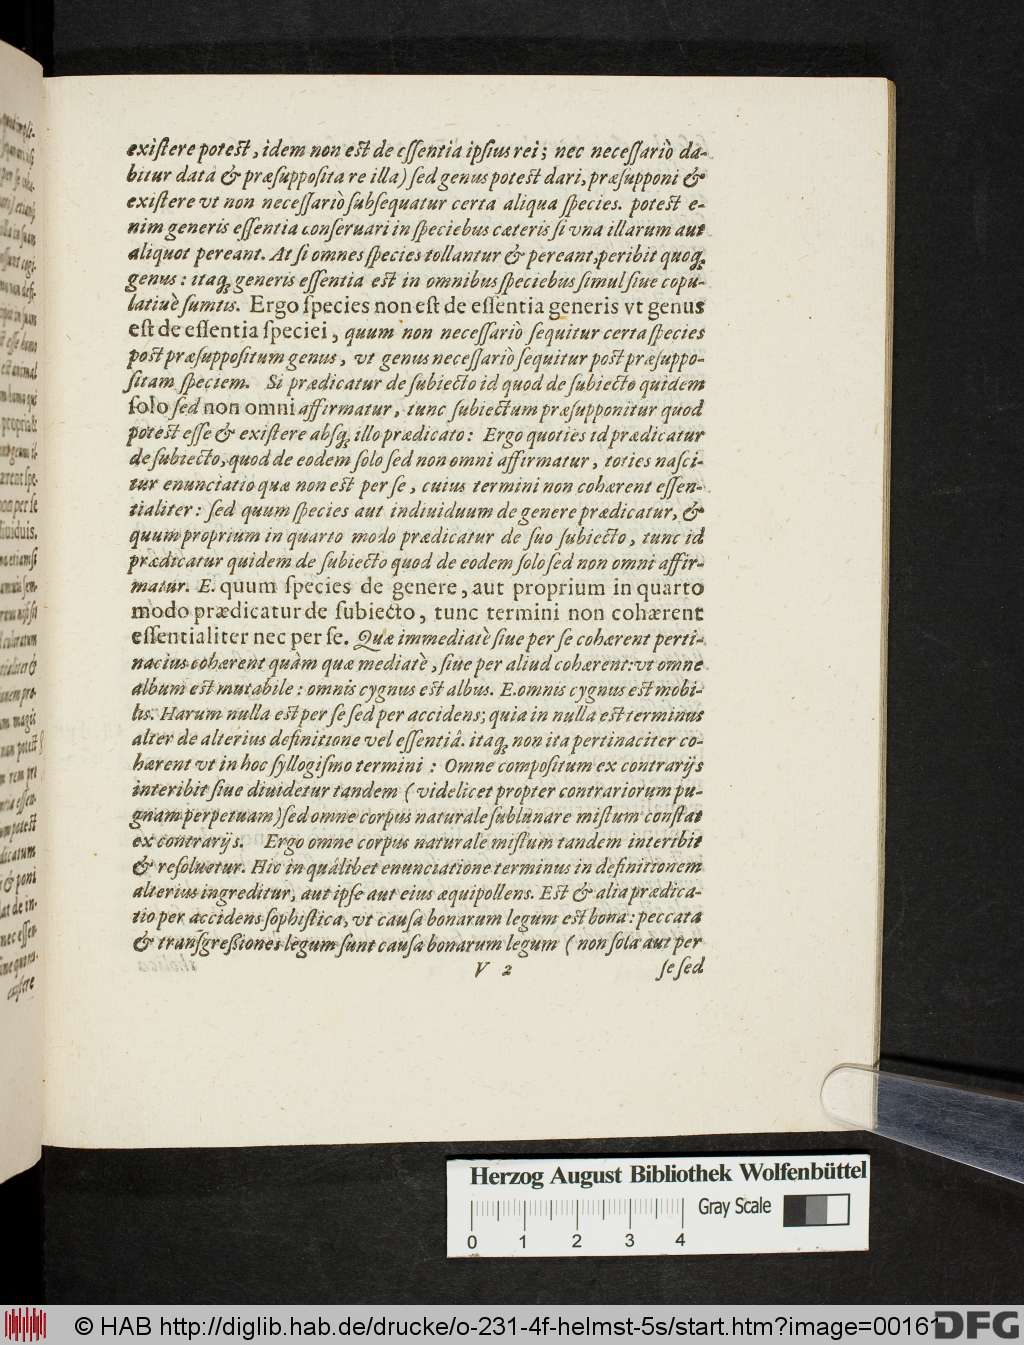 exiſtere poteſt, idem non eſt de eſſentia ipſius rei; nec neceſſariò da-
bitur data & præſuppoſita re illa) ſed genus poteſt dari, præſupponi &
exiſtere vt non neceſſariò ſubſequatur certa aliqua ſpecies. poteſt e-
nim generis eſſentia conſeruari in ſpeciebus cæteris ſi vna illarum aut
aliquot pereant. At ſi omnes ſpecies tollantur & pereant, peribit quoq;
genus: itaq; generis eſſentia eſt in omnibus ſpeciebus ſimul ſiue copu-
latiuè ſumtis. Ergo ſpecies non eſt de eſſentia generis vt genus
eſt de eſſentia ſpeciei, quum non neceſſariò ſequitur certa ſpecies
poſt præſuppoſitum genus, vt genus neceſſariò ſequitur poſt præſuppo-
ſitam ſpeciem. Si prædicatur de ſubiecto id quod de ſubiecto quidem
ſolo ſed non omni affirmatur, tunc ſubiectum præſupponitur quod
poteſt eſſe & exiſtere abſq; illo prædicato: Ergo quoties id prædicatur
de ſubiecto, quod de eodem ſolo ſed non omni affirmatur, toties naſci-
tur enunciatio quæ non eſt per ſe, cuius termini non cohærent eſſen-
tialiter: ſed quum ſpecies aut indiuiduum de genere prædicatur, &
quum proprium in quarto modo prædicatur de ſuo ſubiecto, tunc id
prædicatur quidem de ſubiecto quod de eodem ſolo ſed non omni affir-
matur. E. quum ſpecies de genere, aut proprium in quarto
modo prædicatur de ſubiecto, tunc termini non cohærent
eſſentialiter nec per ſe. Quæ immediatè ſiue per ſe cohærent perti-
nacius cohærent quâm quæ mediatè, ſiue per aliud cohærent: vt omne
album eſt mutabile: omnis cygnus eſt albus. E. omnis cygnus eſt mobi-
lis. Harum nulla eſt per ſe ſed per accidens; quia in nulla eſt terminus
alter de alterius definitione vel eſſentiâ. itaq; non ita pertinaciter co-
hærent vt in hoc ſyllogiſmo termini: Omne compoſitum ex contrarijs
interibit ſiue diuidetur tandem (videlicet propter contrariorum pu-
gnam perpetuam) ſed omne corpus naturale ſublunare miſtum conſtat
ex contrarijs. Ergo omne corpus naturale miſtum tandem interibit
& reſoluetur. Hic in quâlibet enunciatione terminus in definitionem
alterius ingreditur, aut ipſe aut eius æquipollens. Eſt & alia prædica-
tio per accidens ſophiſtica, vt cauſa bonarum legum eſt bona: peccata
& tranſgreſsiones legum ſunt cauſa bonarum legum (non ſola aut per
V 2 ſe ſed
Herzog August Bibliothek Wolfenbüttel
Gray Scale
0 1 2 3 4
© HAB http://diglib.hab.de/drucke/o-231-4f-helmst-5s/start.htm?image=00161
DFG